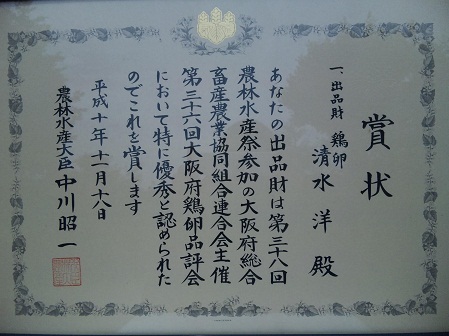 賞状
一、出品財 鶏卵
清水洋殿
あなたの出品財は第三十八回
農林水産祭参加の大阪府総合
畜産農業協同組合連合会主催
第三十六回大阪府鶏卵品評会
において特に優秀と認められた
のでこれを賞します
平成十年十一月十八日
農林水産大臣 中川昭一